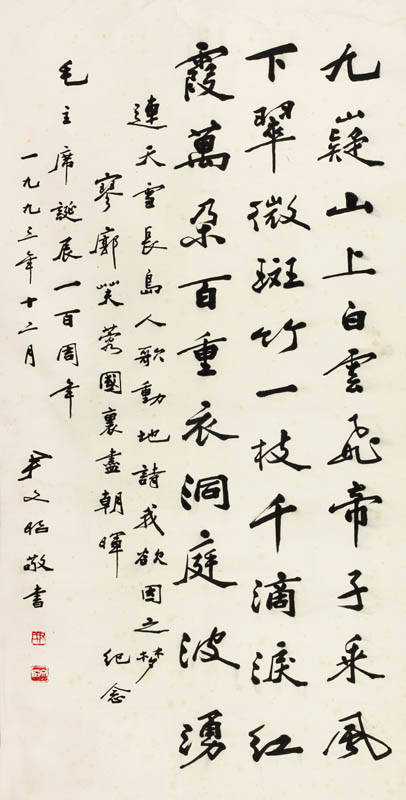 九嶷山上白雲飛帝子乘風
下翠微斑竹一枝千滴淚紅
霞萬朵百重衣洞庭波湧
連天雪長島人歌動地詩我欲因之夢
寥廓芙蓉國裏盡朝暉 紀念
毛主席誕辰一百周年
一九九三年十二月 文昭敬書